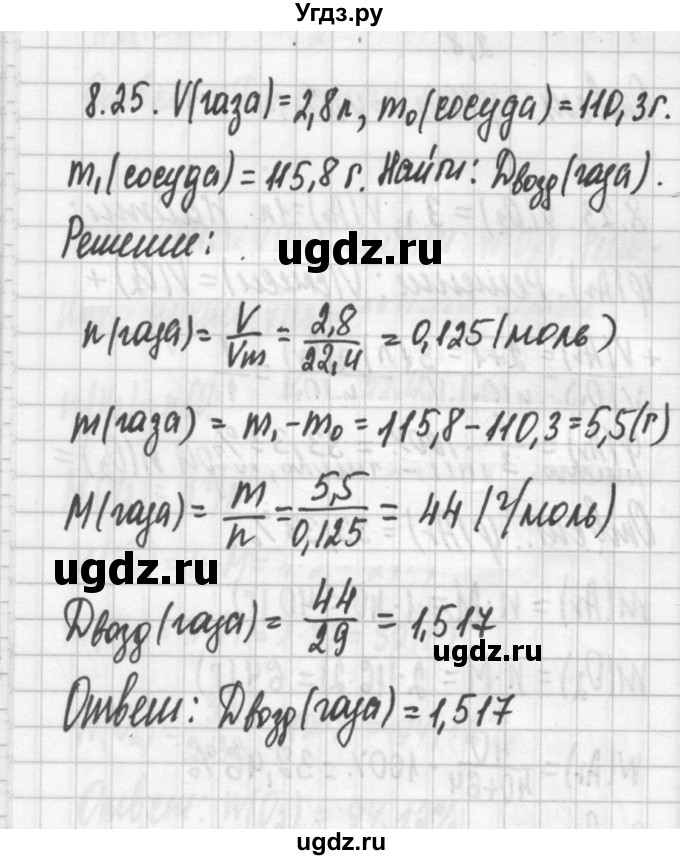 Угдз.ру
8.25. V(газа)=2,8л, m₀(сосуда)=110,3г.
m₁(сосуда)=115,8г. Найти: Dвозд(газа).
Решение:
ugdz.ru
n(газа)= V/Vm = 2,8/22,4 = 0,125(моль)
m(газа) = m₁-m₀ = 115,8-110,3=5,5(г)
M(газа)= m/n = 5,5/0,125 = 44 (г/моль)
ugdz.ru
Dвозд(газа)= 44/29 = 1,517
ugdz.ru
Ответ: Dвозд(газа)=1,517
ugdz.ru